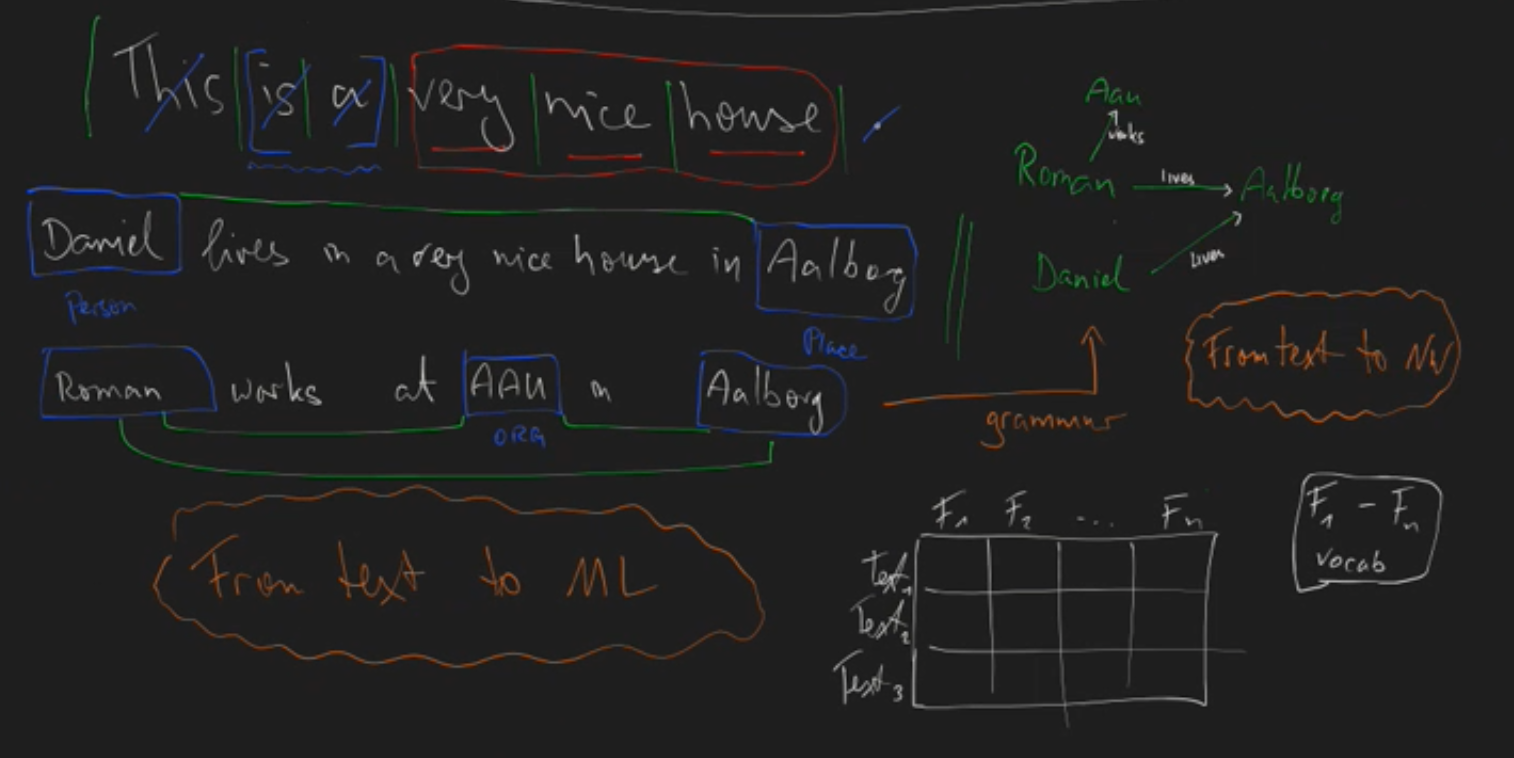 This is a very nice house .
Daniel lives in a very nice house in Aalborg
Person
Place
Roman works at AAU in Aalborg
ORG
From text to ML
Aau
works
Roman lives Aalborg
Daniel lives
From text to NW
grammar
F1 F2 ... Fn
Text1
Text2
Text3
F1 - Fn
vocab